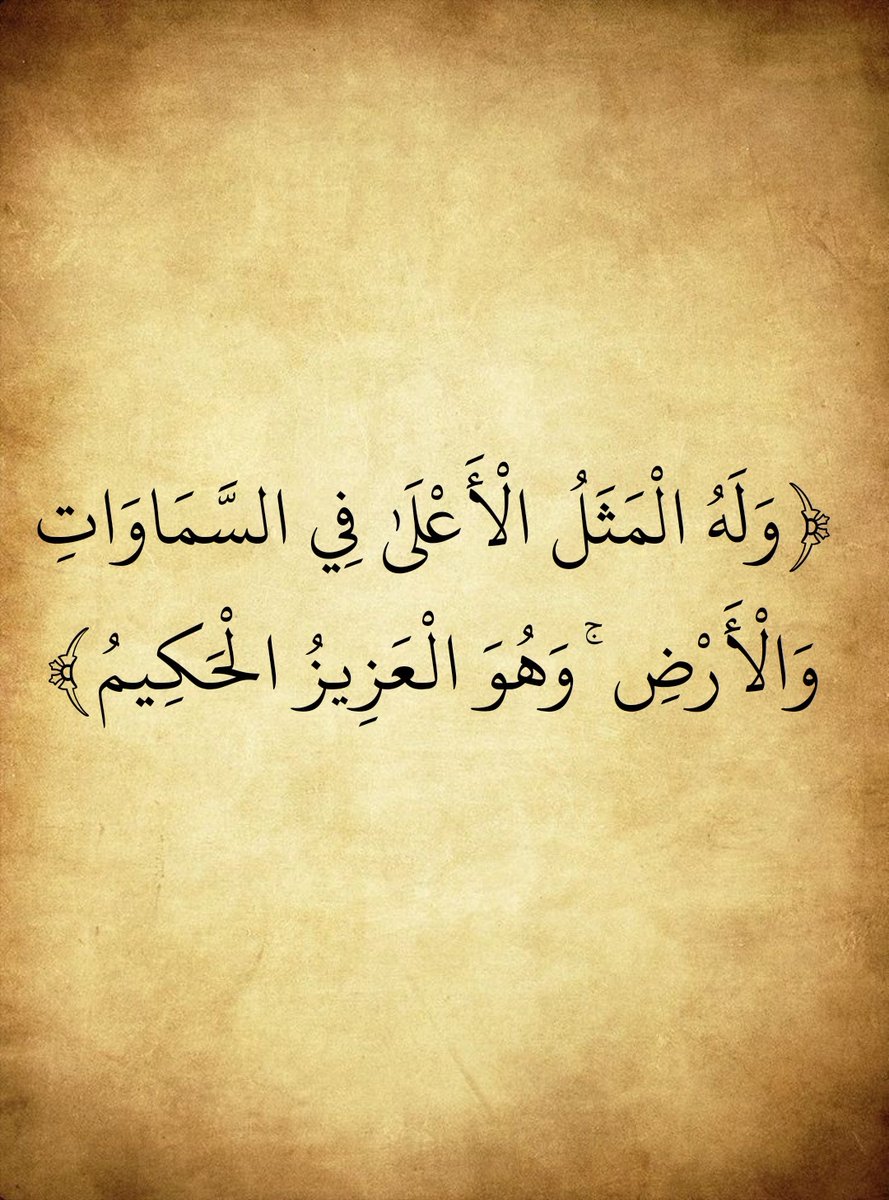 ﴿ وَلَهُ الْمَثَلُ الْأَعْلَىٰ فِي السَّمَاوَاتِ
وَالْأَرْضِ ۚ وَهُوَ الْعَزِيزُ الْحَكِيمُ ﴾